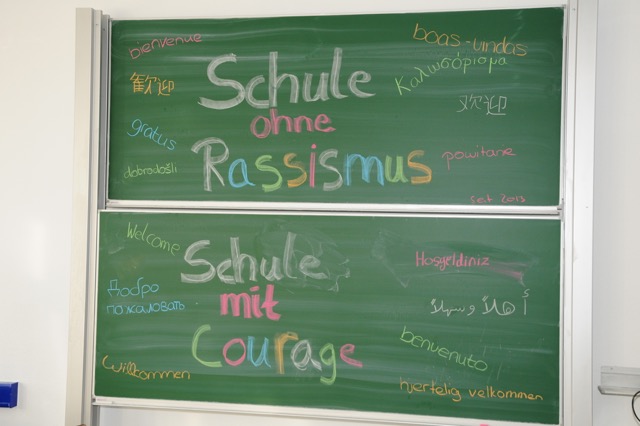 bienvenue
boas-vindas
Καλωσόρισμα
歓迎
Schule
欢迎
ohne
gratus
Rassismus
powitane
dobrodošli
seit 2013
Welcome
Schule
Hosgeldiniz
Добро
пожаловать
mit
أهلاً و سهلاً
Courage
benvenuto
Willkommen
hjertelig velkommen